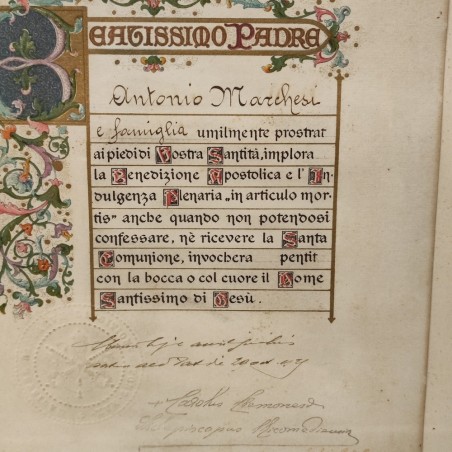 BEATISSIMO PADRE
Antonio Marchesi
e famiglia umilmente prostrat
ai piedi di Vostra Santità, implora
la Benedizione Apostolica e l'In-
dulgenza Plenaria „in articulo mor-
tis" anche quando non potendosi
confessare, nè ricevere la Santa
Comunione, invochera pentit
con la bocca o col cuore il Nome
Santissimo di Gesù.